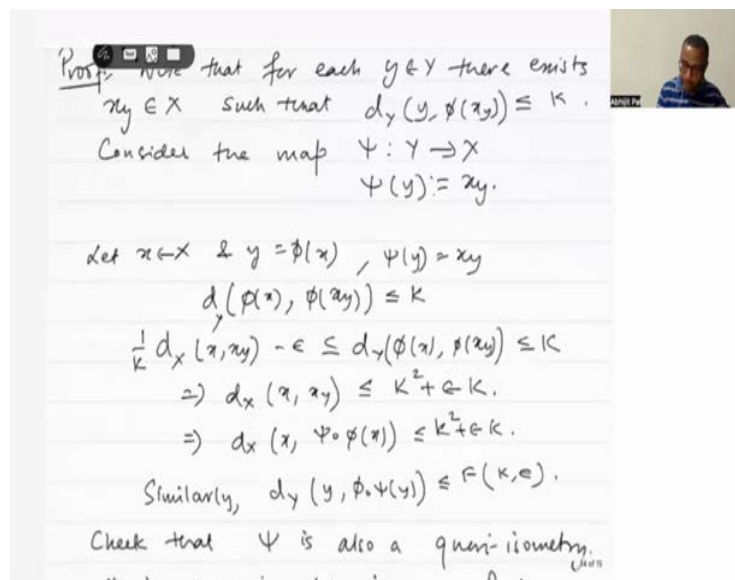 Proof: Note that for each y ∈ Y there exists
x_y ∈ X such that d_Y(y, φ(x_y)) ≤ K.
Consider the map Ψ : Y → X
Ψ(y) := x_y.
Let x ∈ X & y = φ(x), Ψ(y) = x_y
d_Y(φ(x), φ(x_y)) ≤ K
1/K d_X(x, x_y) - ε ≤ d_Y(φ(x), φ(x_y)) ≤ K
⇒ d_X(x, x_y) ≤ K² + εK.
⇒ d_X(x, Ψ∘φ(x)) ≤ K² + εK.
Similarly, d_Y(y, φ∘Ψ(y)) ≤ F(K, ε).
Check that Ψ is also a quasi-isometry.
Abhijit Pal